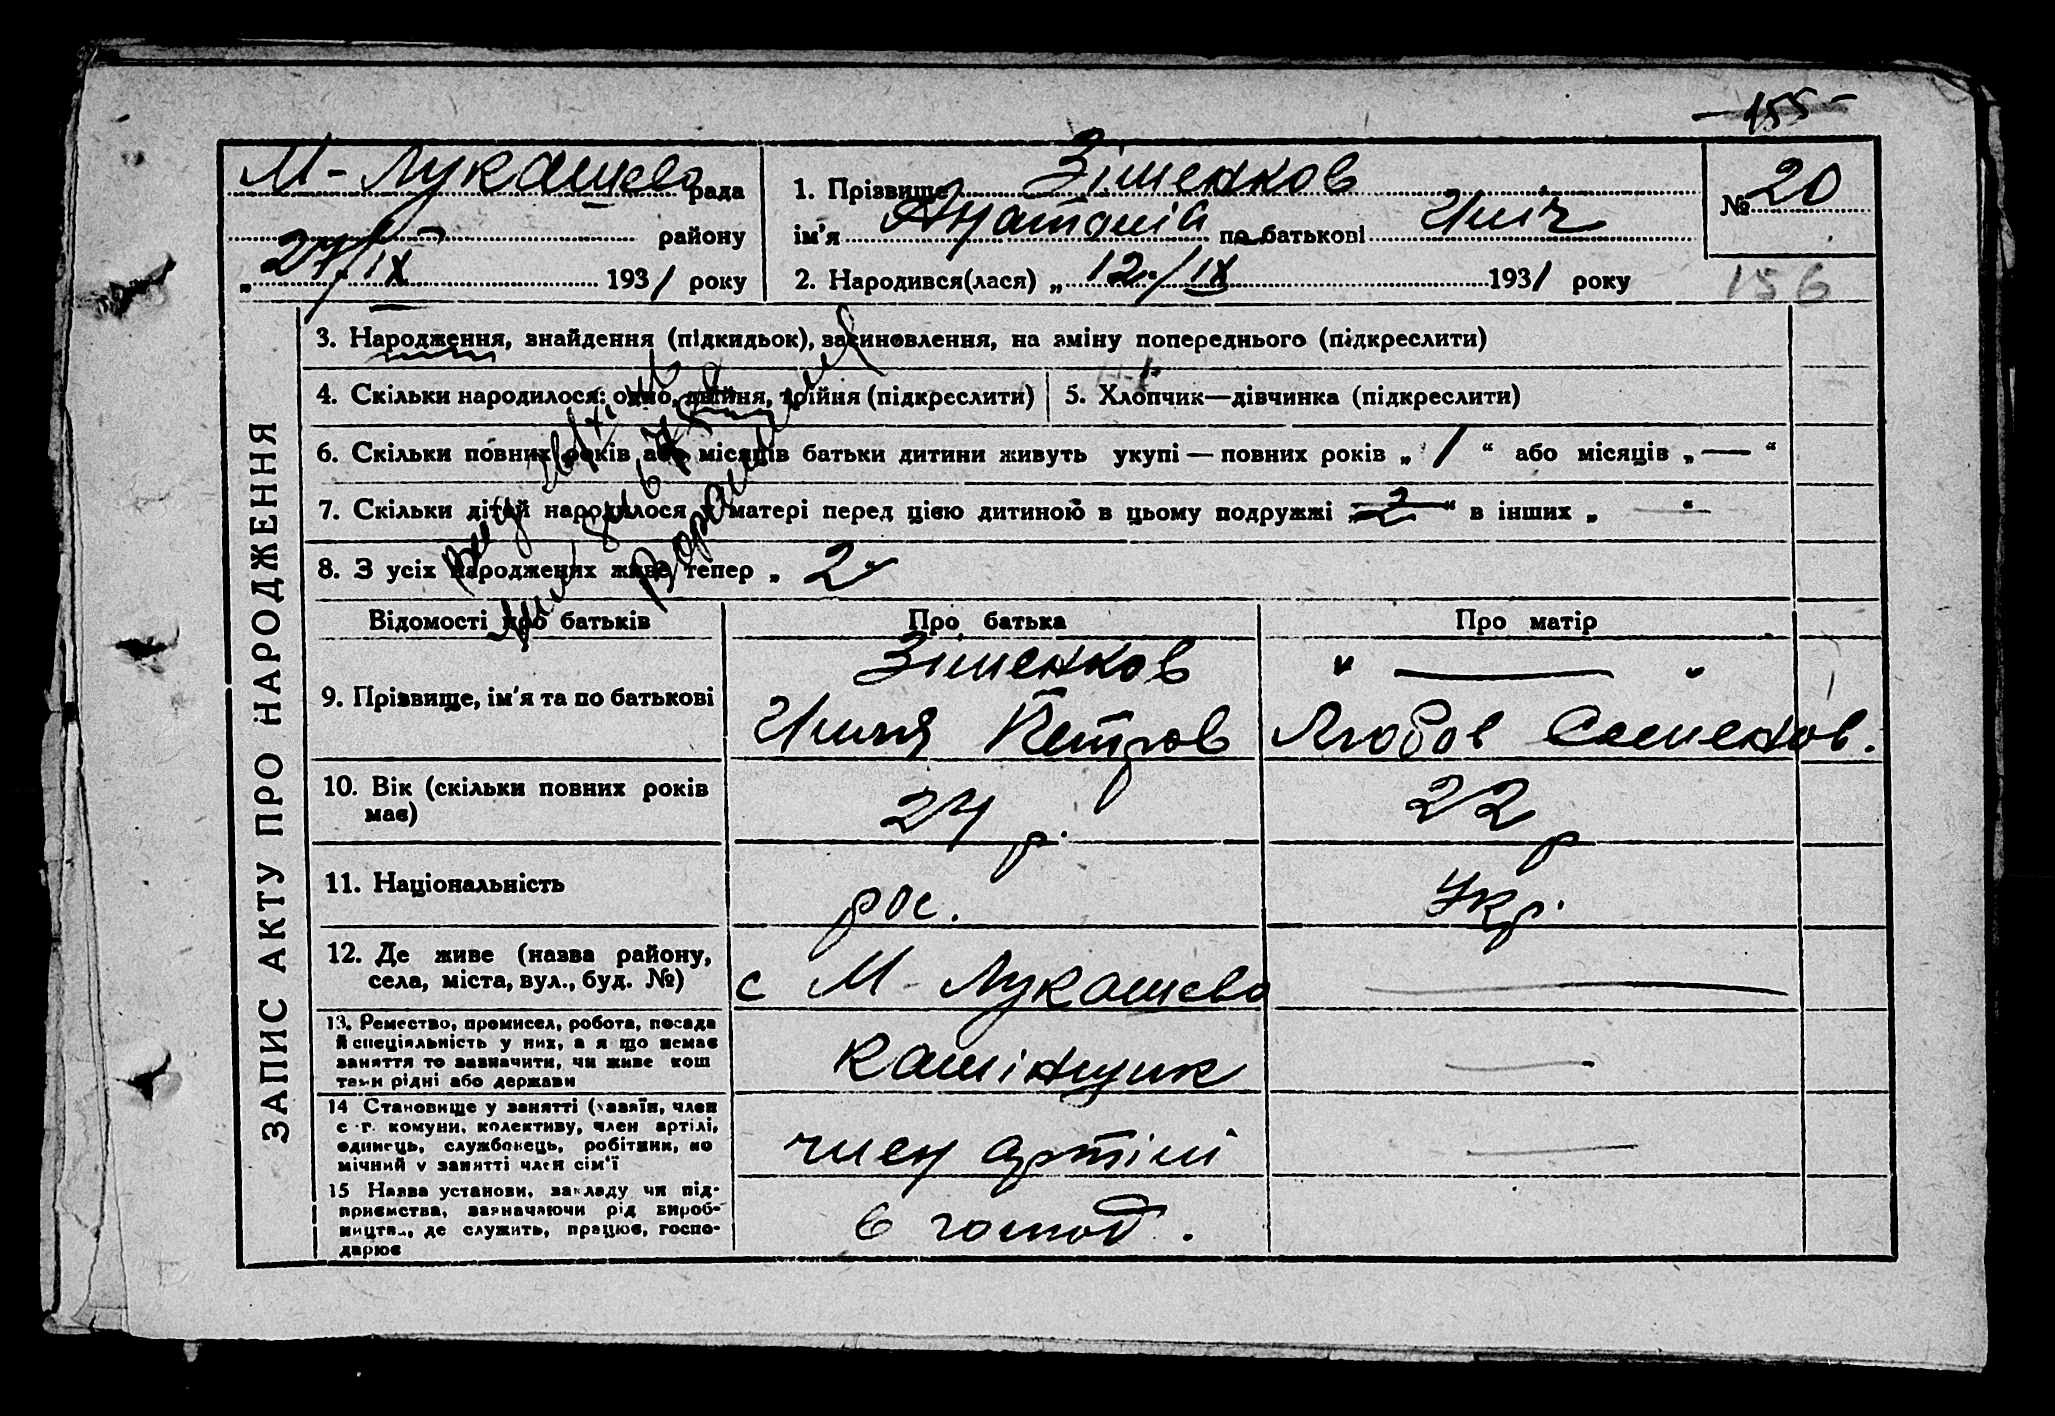 — 155 —
М-Лукашево рада
району
„ 27/IX 1931 року
1. Прізвище Зіменков
ім'я Анатолій по батькові Ілліч
2. Народився(лася) „ 12/IX 1931 року
№ 20
156
ЗАПИС АКТУ ПРО НАРОДЖЕННЯ
3. Народження, знайдення (підкидьок), засиновлення, на зміну попереднього (підкреслити)
4. Скільки народилося: одно, двійня, трійня (підкреслити)
5. Хлопчик—дівчинка (підкреслити)
6. Скільки повних років або місяців батьки дитини живуть укупі — повних років „ 1 “ або місяців „ — “
7. Скільки дітей народилося у матері перед цією дитиною в цьому подружжі „ 2 “ в інших „ — “
8. З усіх народжених живе тепер „ 2 “
Відомості про батьків
Про батька
Про матір
9. Прізвище, ім'я та по батькові
Зіменков
Илля Петров
„ — “
Любов Семенов.
10. Вік (скільки повних років
має)
24 р.
22 р
11. Національність
рос.
Укр.
12. Де живе (назва району,
села, міста, вул., буд. №)
с М-Лукашево
—
13. Ремество, промисел, робота, посада
й спеціяльність у них, а я що немає
заняття то зазначити, чи живе кош
тами рідні або держави
камінщик
—
14 Становище у занятті (хазяїн, член
с-г. комуни, колективу, член артілі,
одинець, службовець, робітник, по
мічний у занятті член сім'ї
член артілі
—
15 Назва установи, закладу чи під-
приємства, зазначаючи рід вироб-
ництва, де служить, працює, госпо-
дарює
в господ.